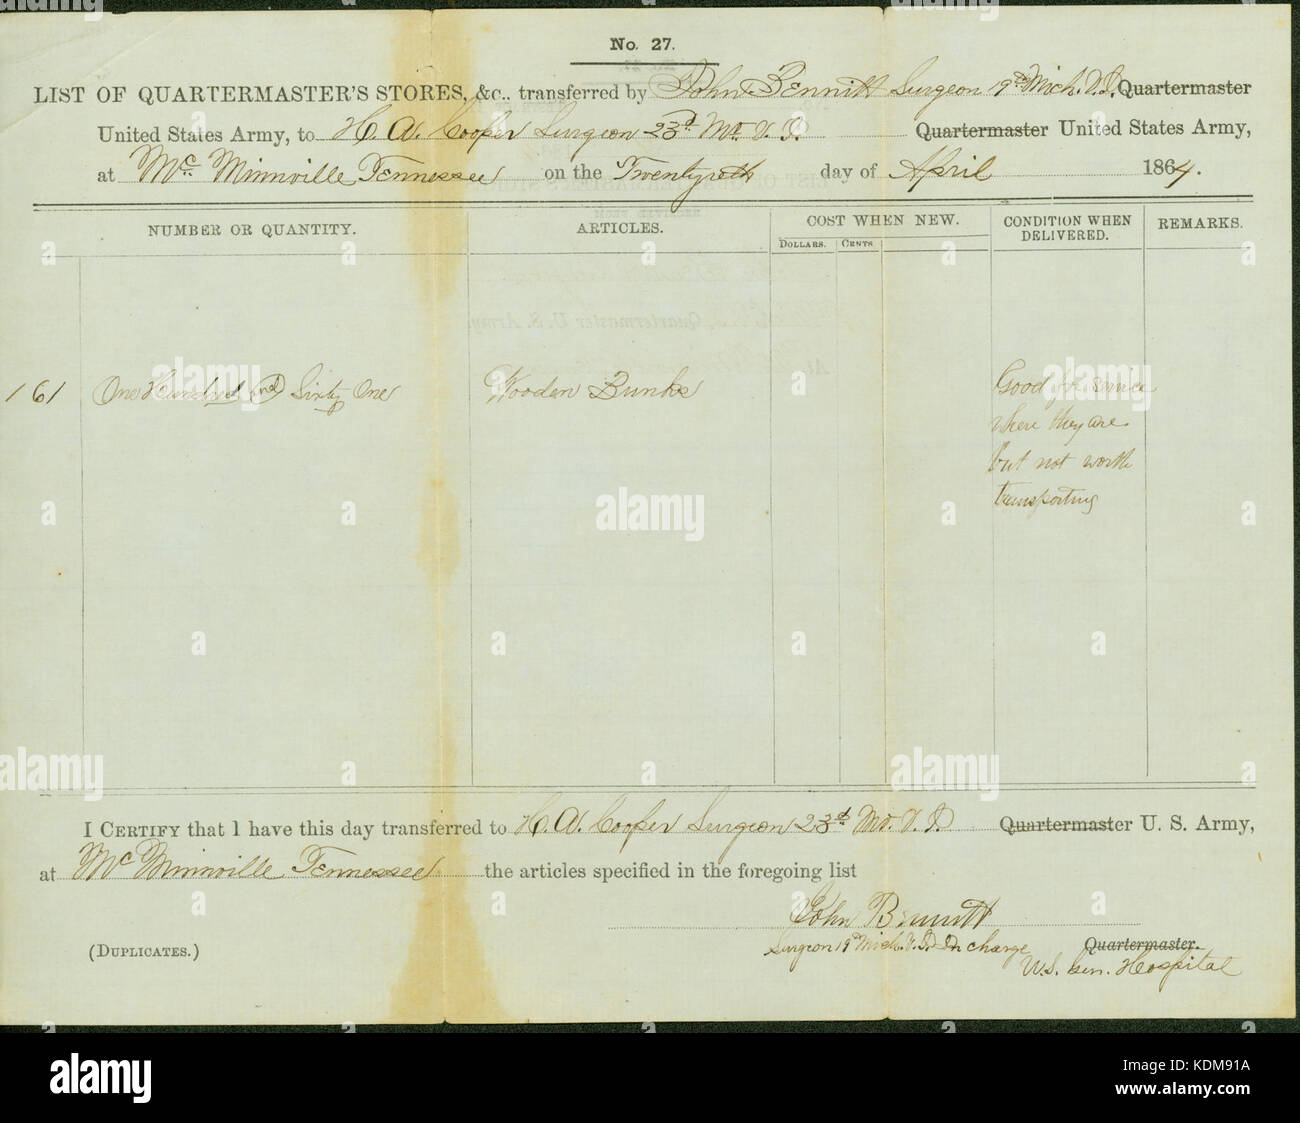 No. 27.
LIST OF QUARTERMASTER'S STORES, &c., transferred by John Bennitt Surgeon 19th Mich. V. I. Quartermaster
United States Army, to H. A. Cooper Surgeon 23d Mo. V. I. Quartermaster United States Army,
at Mc Minnville Tennessee on the Twentyeth day of April 1864.
NUMBER OR QUANTITY. ARTICLES. COST WHEN NEW. CONDITION WHEN DELIVERED. REMARKS.
DOLLARS. CENTS
161 One Hundred and Sixty One Wooden Bunks Good for service
where they are
but not worth
transporting
I CERTIFY that I have this day transferred to H. A. Cooper Surgeon 23d Mo. V. I. Quartermaster U. S. Army,
at Mc Minnville Tennessee the articles specified in the foregoing list
John Bennitt
Surgeon 19th Mich. V. I. In charge Quartermaster.
U.S. Gen. Hospital
(DUPLICATES.)
alamy
Image ID: KDM91A
www.alamy.com